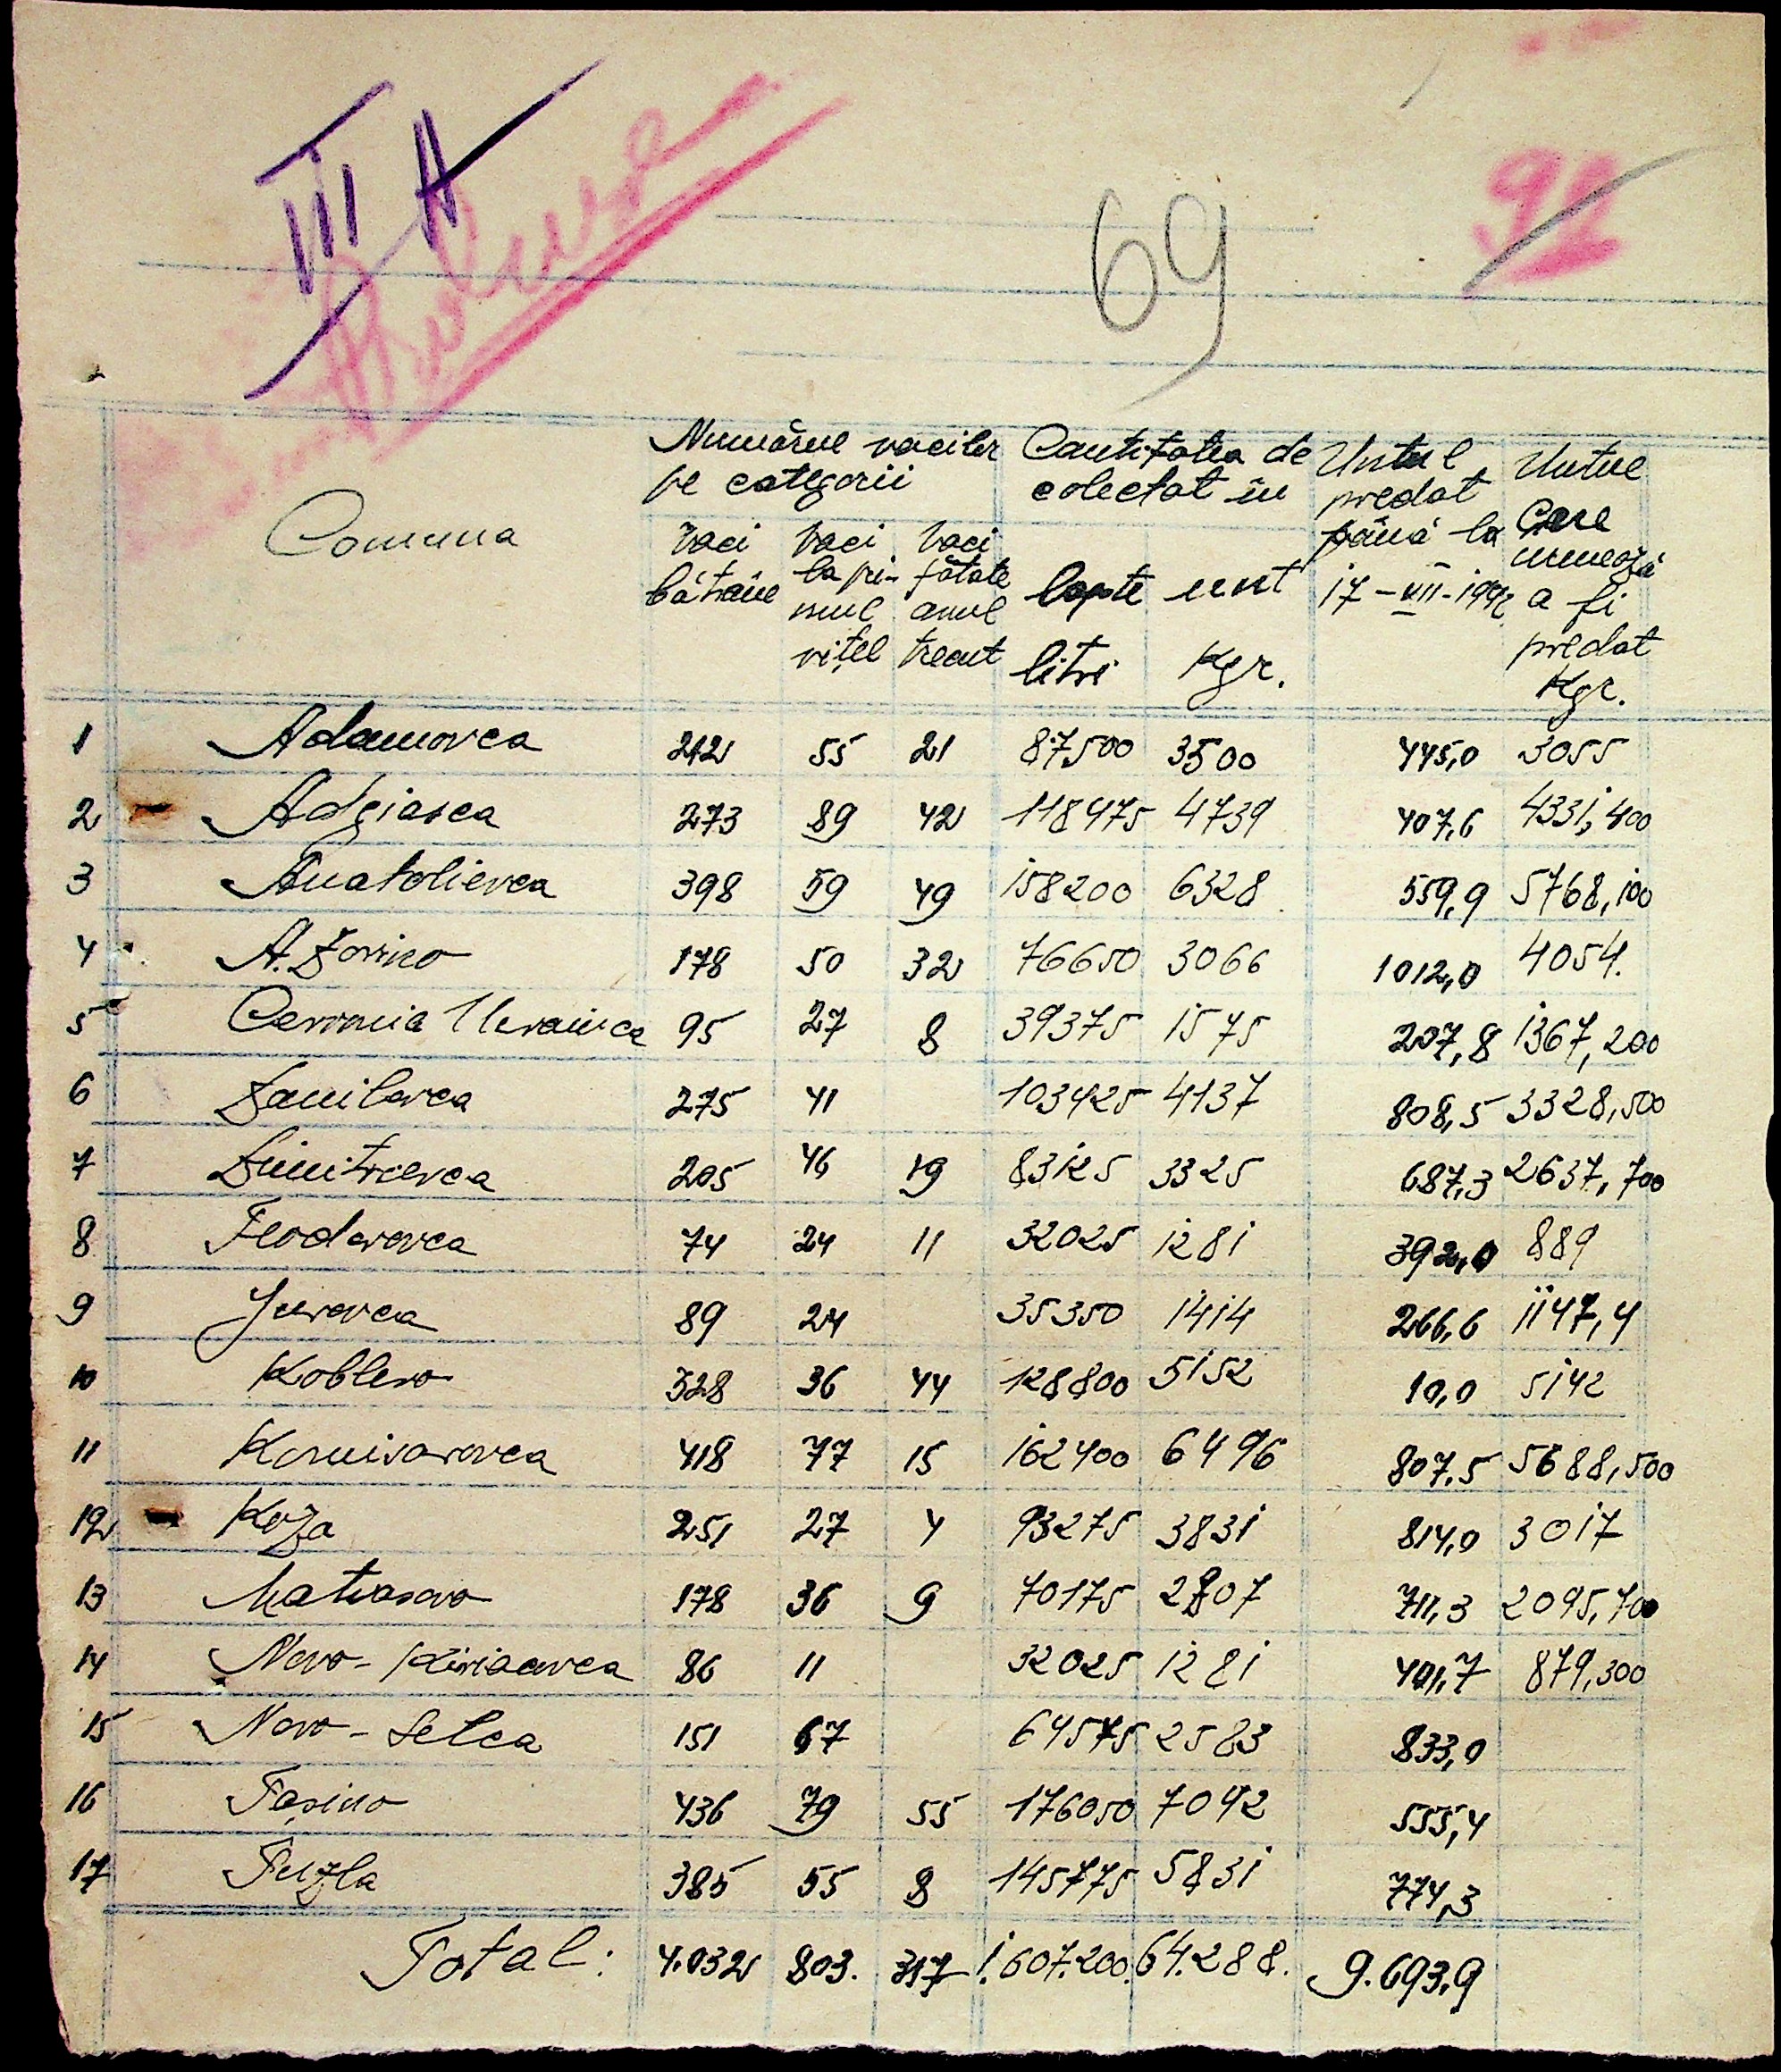 III A
69
92
Comuna
Numărul vacilor pe categorii
Cantitatea de colectat în
Untul predat până la 17-VII-1942
Untul care urmează a fi predat Kgr.
vaci bătrâne
vaci la primul vițel
vaci fătate anul trecut
lapte litri
unt Kgr.
1 Adamovca 212 55 21 87500 3500 445,0 3055
2 Adgiasca 273 89 42 118475 4739 407,6 4331,400
3 Anatolievca 398 59 49 158200 6328 559,9 5768,100
4 A. Zorino 178 50 32 76650 3066 1012,0 4054.
5 Ceromia Ucrainca 95 27 8 39375 1575 207,8 1367,200
6 Danilovca 275 41 103425 4137 808,5 3328,500
7 Dimitrievca 205 46 19 83125 3325 687,3 2637,700
8 Feodorovca 74 24 11 32025 1281 392,0 889
9 Jurovca 89 24 35350 1414 266,6 1147,4
10 Koblevo 328 36 44 128800 5152 10,0 5142
11 Komisarovca 418 77 15 162400 6496 807,5 5688,500
12 Koza 251 27 4 93275 3831 814,0 3017
13 Matiasovo 178 36 9 70175 2807 711,3 2095,700
14 Novo-Kiriacovca 86 11 32025 1281 401,7 879,300
15 Novo-Selca 151 67 64575 2583 833,0
16 Tașino 436 79 55 176050 7042 555,4
17 Tuzla 385 55 8 145775 5831 774,3
Total: 4.032 803. 317 1.607.200. 64.288. 9.693,9